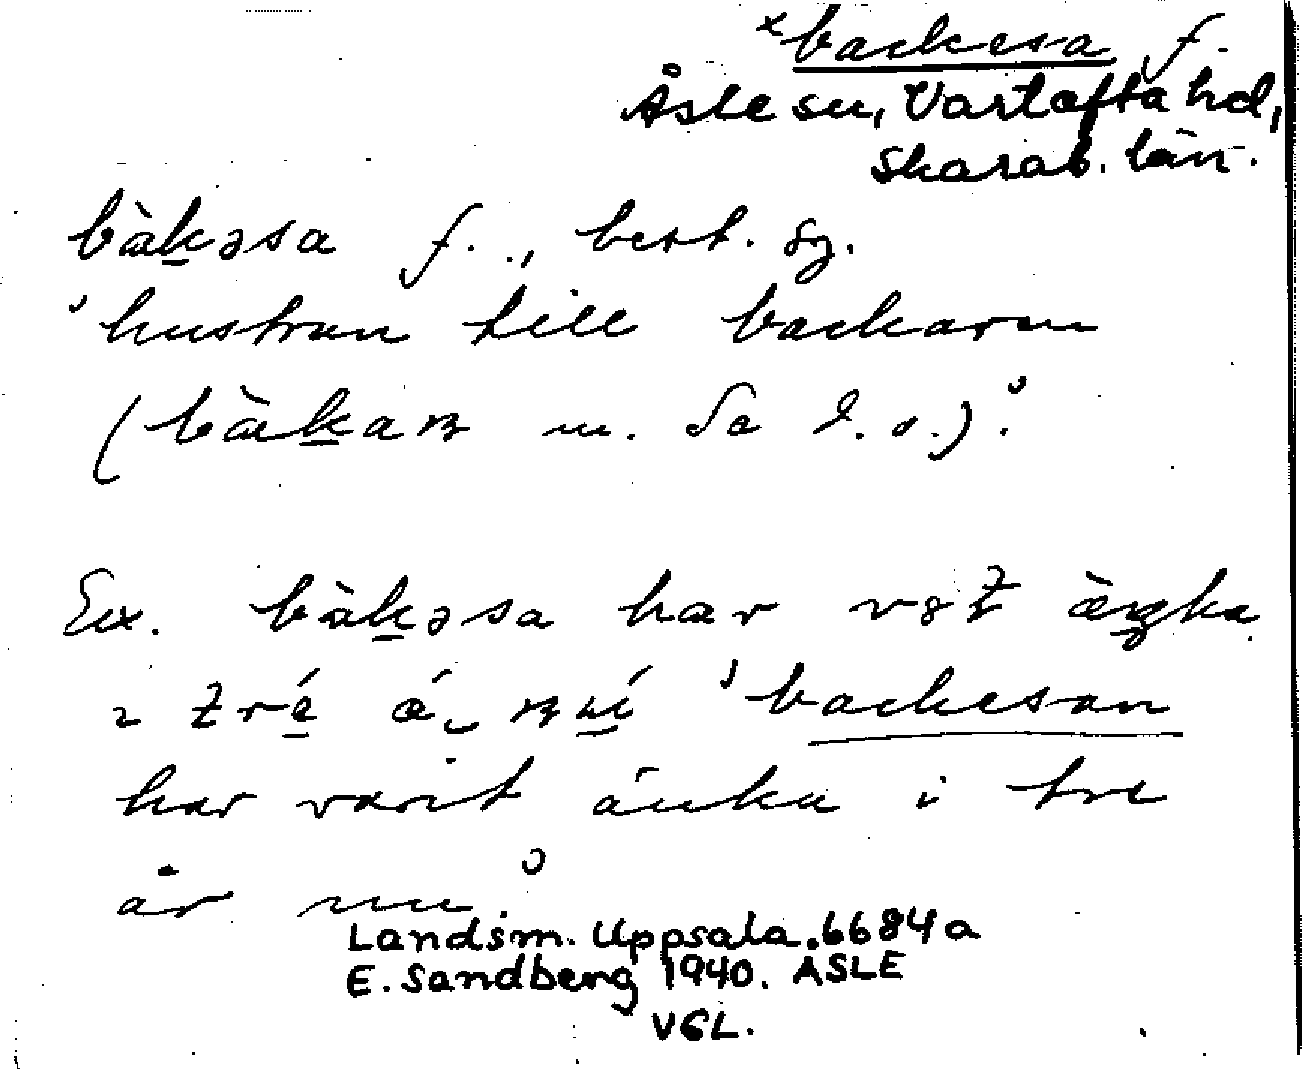 ×backesa f.
Åsle sn, Vartofta hd,
Skarab. län.
bàk̲əsa f., best. sg.
'hustrun till backarn
(bàk̲aɴ m. Se d. o.).'
Ex. bàk̲əsa har vət æ̀ŋka
ɩ tré̲ á, nú̲ 'backesan
har varit änka i tre
år nu'.
Landsm. Uppsala. 6684a
E. Sandberg 1940. ÅSLE
VGL.